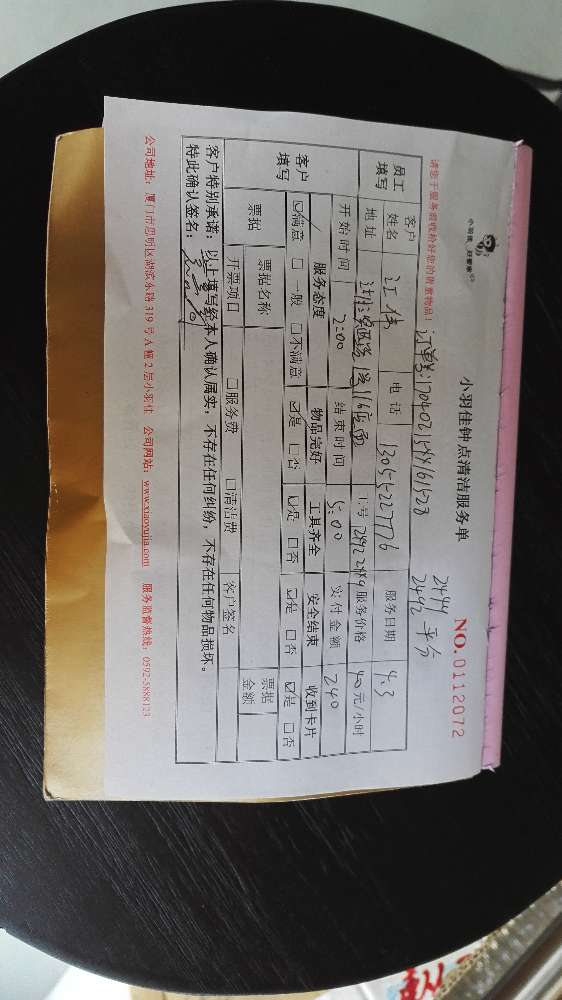 小羽佳 好管家
小羽佳钟点清洁服务单
2494
2492 平分
NO.0112072
请您于服务前收检好您的贵重物品！
员工填写 客户姓名 江伟 电话 服务日期 4.3
地址 工号 服务价格 40元/小时
开始时间 2:00 结束时间 5:00 实付金额 240
客户填写 服务态度 物品完好 工具齐全 安全结束 收到卡片
☑满意 □一般 □不满意 ☑是 □否 ☑是 □否 ☑是 □否 ☑是 □否
票据 票据名称 票据金额
开票项目 □服务费 □清洁费 客户签名
客户特别承诺：以上填写经本人确认属实，不存在任何纠纷，不存在任何物品损坏。
特此确认签名：
公司地址：厦门市思明区湖滨东路 319 号 A 幢 2 层小羽佳 公司网站：www.xiaoyujia.com 服务监督热线：0592-5888123